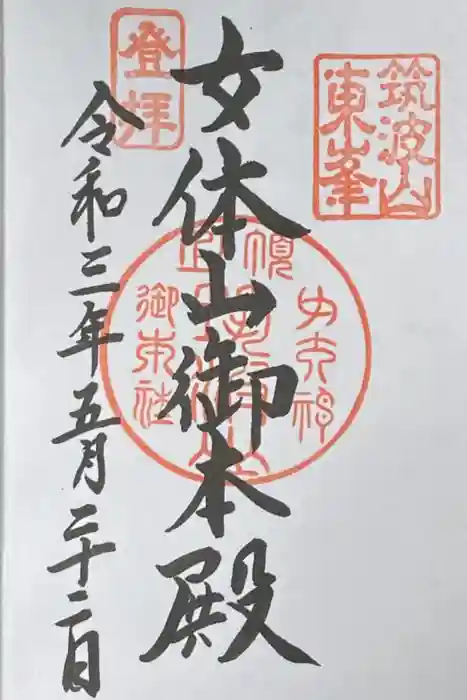 筑波山
東峯
女体山御本殿
登拝
令和三年五月二十二日
御本社